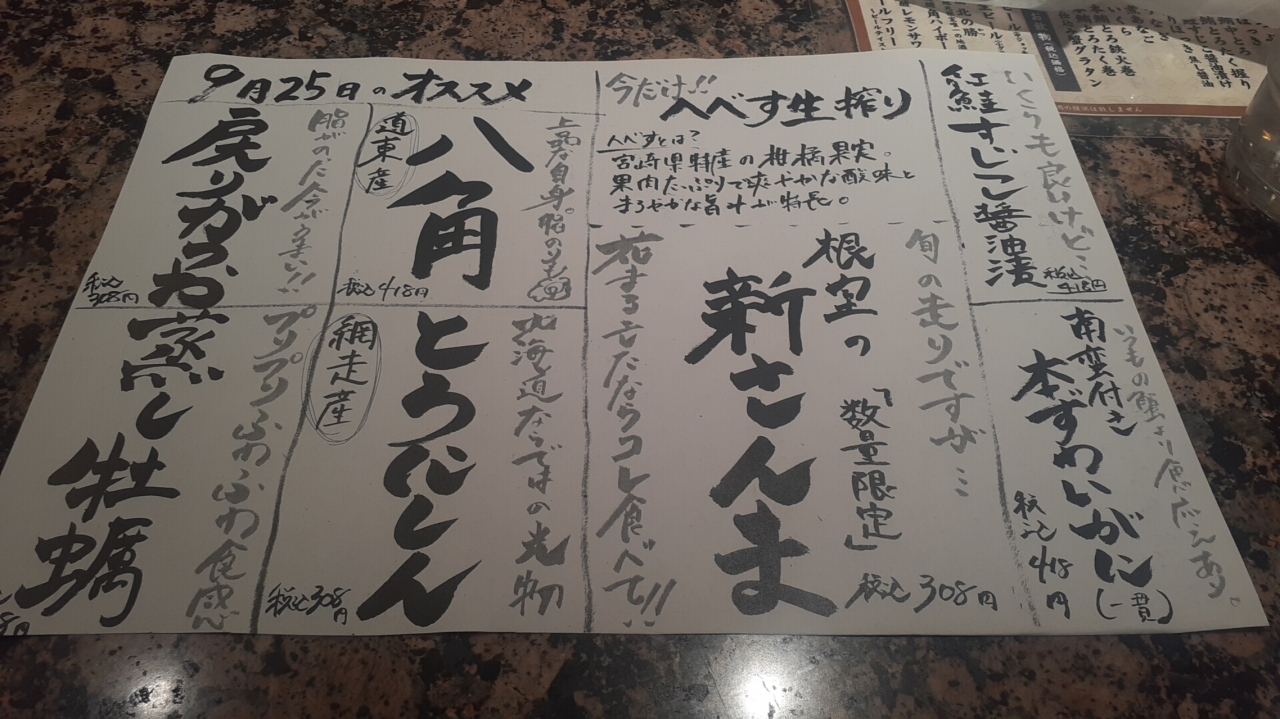 9月25日のオススメ
今だけ!!
へべす生搾り
へべすとは?
宮崎県特産の柑橘果実。
果肉たっぷりで爽やかな酸味と
まろやかな旨みが特長。
いくらも良いけど…
紅鮭すじこ醤油漬
税込418円
いつもの蟹より食べ応えあり。
南蛮付き
本ずわいがに
(一貫)
税込418円
旬の走りですが…
根室の
新さんま
「数量限定」
税込308円
始まるモたならコレ食べて!!
上品な白身。脂のりも
道東産
八角
税込418円
北海道ならではの光物
網走産
とろにしん
税込308円
脂がのった今がうまい!!
戻りがつお
税込308円
プリプリふわふわ食感
蒸し牡蠣
8円
お品物(税込価格)